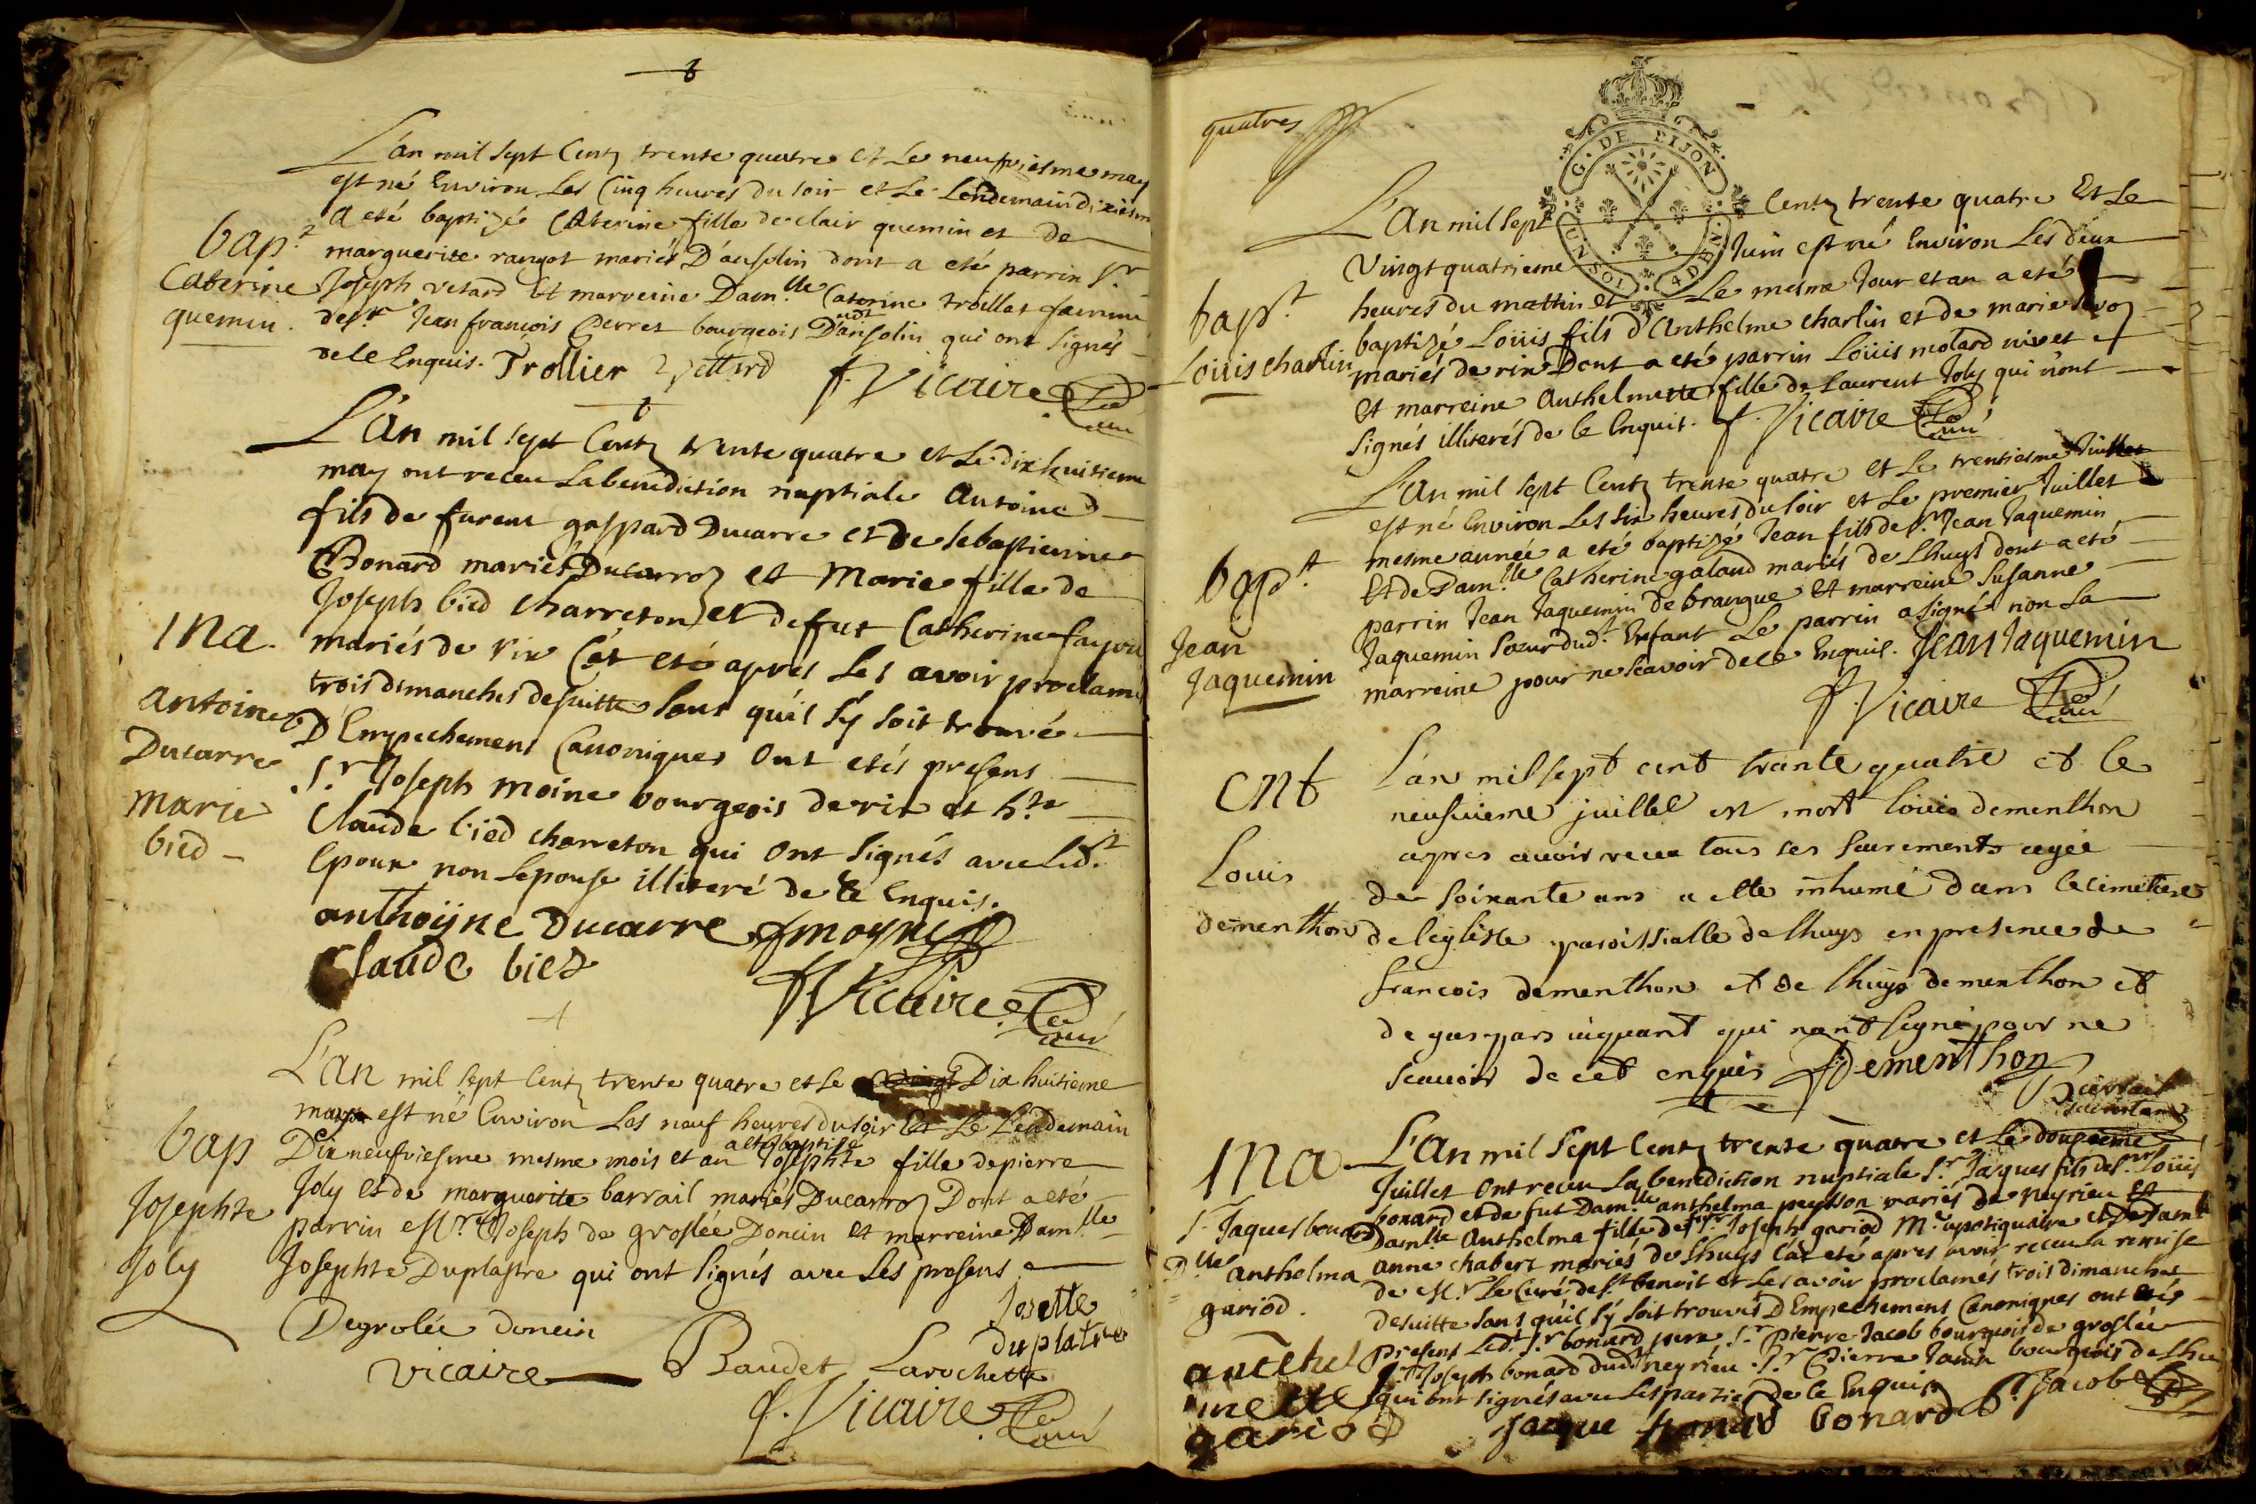 L'an mil sept Centz trente quatre et Le neufviesme may
est né Environ Les Cinq heures du soir et Le Lendemain dixiesme
a eté baptizé Caterine fille de clair quemin et de
bap.t
marguerite rangot mariés D'ansolin dont a eté parrin Sr
Caterine
Joseph vetard Et marreine Dam.lle Caterine trollier famme
quemin.
de Sr Jean françois Perret bourgeois Dudt ansolin qui ont signés
de ce Enquis. Trollier vettard f. Vicaire Curé
L'An mil sept Centz trente quatre et Le dix huitieme
may ont receu La benediction nuptiale Antoine
fils de furent gaspard Ducarre et de sebastienne
Bonard mariés Ducarroz et Marie fille de
Joseph bied charreton et de fut Catherine fayon
ma.
mariés de rix C'ât eté apres Les avoir proclamé
trois dimanches de suitte sans qu'il s'y soit trouvé
antoine
D Empechement Canonique Ont etés presens
Ducarre
Sr Joseph moine bourgeois de rix et h.te
marie
Claude bied charreton qui Ont signés avec Led.t
bied
Epoux non Lepouse illiteré de ce Enquis.
anthoyne Ducarre J moyne
Claude bied
f Vicaire Curé
L'an mil sept Centz trente quatre et Le vingt Dix huitieme
may est né Environ Les neuf heures du soir Et Le Lendemain
bap
a eté baptisé
Dix neufviesme mesme mois et an Josephte fille de pierre
Joly et de marguerite barrail mariés Ducarroz Dont a eté
Josephte
parrin Mr. Joseph de groslée Doncin et marreine Dam.lle
Joly
Josephte Duplastre qui ont signés avec Les presens
Degrolée doncin
Josette
duplatre
vicaire Baudet Larochette
f. Vicaire Curé
quatres
G. DE DIJON
UN SOL 4 DEN.
L'An mil sept Centz trente quatre Et Le
Vingt quatrieme Juin est né Environ Les deux
bapt.
heures du mattin et Le mesme Jour et an a eté
Louis charlin
baptizé Loüis fils d'Anthelme charlin et de marie
mariés de rix Dont a eté parrin Loüis motard nivet
Et marreine Anthelmette fille de Laurent Joly qui n'ont
signés illiterés de ce Enquit. f. Vicaire Curé
L'An mil sept Centz trente quatre et Le trentiesme Juillet
est né Environ Les six heures du soir et Le premier Juillet
bapt.
mesme année a eté baptizé Jean fils de Sr Jean Jaquemin
Et de Dam.lle Catherine galand mariés de Lhuys dont a eté
parrin Jean Jaquemin de brangue Et marreine Susanne
Jean
Jaquemin Sœur dud.t Enfant Le parrin a signé non La
Jaquemin
marreine pour ne scavoir de ce Enquis. Jean Jaquemin
f. Vicaire Curé
ent
L'an mil sept cent trante quatre et le
neufvieme juillet est mort louis dementhon
apres avoir receu tous ses sacrements agée
Louis
de soixante ans a ette inhumé dans le cimettiere
dementhon
de leglise paroissialle de lhuys en presence de
francois dementhon et de lhuys dementhon et
de gaspars qui nont signé pour ne
scauoir de cet enquis f Dementhon
ma
L'An mil Sept Centz trente quatre et Le douzieme
Juillet Ont receu La benediction nuptiale Sr Jaques fils de Sr Loüis
S. Jaques bonard
bonard et de fut Dam.lle anthelma peysson mariés de neyrieu et
Dam.lle Anthelma fille de Sr Joseph gariod Me apotiquaire et de Dam.lle
D.lle anthelma
anne chabert mariés de Lhuys C'ât eté apres avoir receu La remise
gariod.
de Mr. Le Curé de St benoit et Les avoir proclamés trois dimanches
desuitte sans quil s'y soit trouvés D Empechement Canoniques ont etés
present Led.t Sr bonard pere Sr Pierre Jacob bourgeois de groslée
Joseph bonard dud.t neyrieu Sr Pierre Janin bourgeois de Lhuis
qui ont signés avec Les parties de ce Enquis P. Jacob
antchel
mette
gariod
Jacque bonard bonard